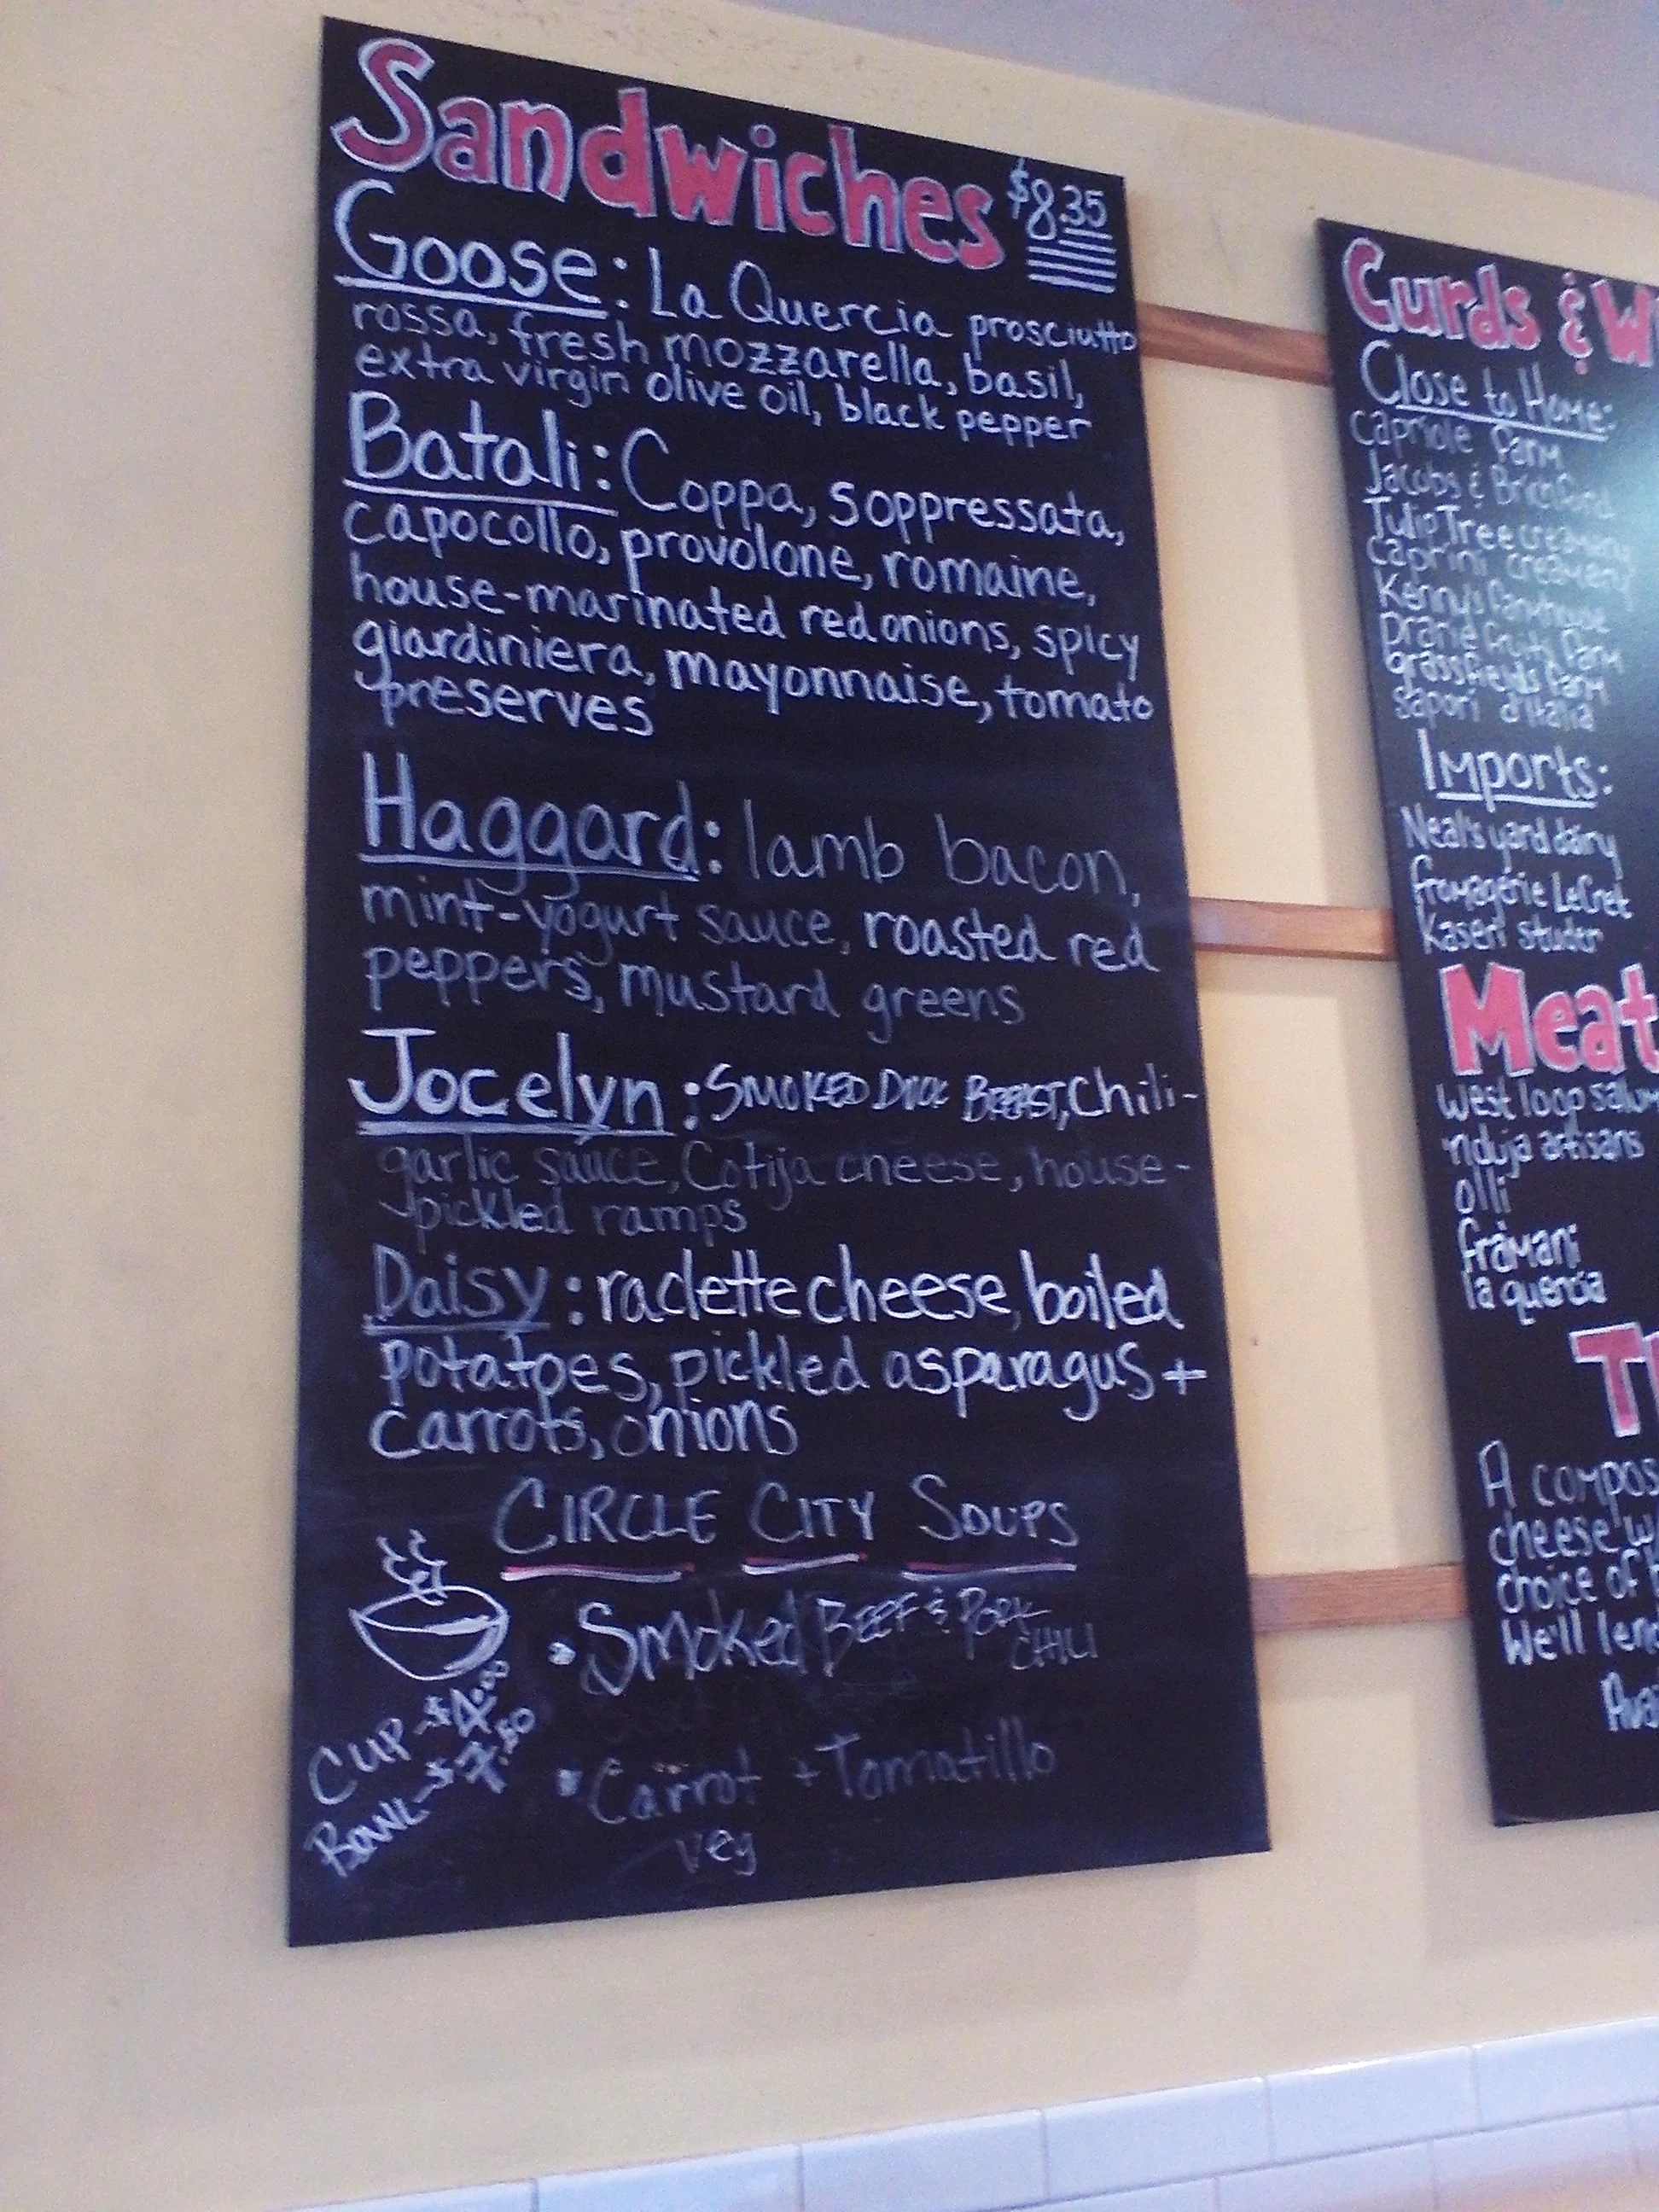 Sandwiches $8.35
Goose: La Quercia prosciutto
rossa, fresh mozzarella, basil,
extra virgin olive oil, black pepper
Batali: Coppa, Soppressata,
capocollo, provolone, romaine,
house-marinated red onions, spicy
giardiniera, mayonnaise, tomato
preserves
Haggard: lamb bacon,
mint-yogurt sauce, roasted red
peppers, mustard greens
Jocelyn: SMOKED DUCK BREAST, Chili-
garlic sauce, Cotija cheese, house-
pickled ramps
Daisy: raclette cheese, boiled
potatoes, pickled asparagus +
carrots, onions
CIRCLE CITY SOUPS
• Smoked BEEF & PORK
CHILI
CUP - $4.00
BOWL - $7.50
• Carrot + Tomatillo
veg
Curds & W
Close to Home:
Capriole Farm
Jacobs & Brichford
Tulip Tree creamery
Caprini creamery
Kenny's Farmhouse
Prarie Fruits Farm
grassfields Farm
Sapori d'Italia
Imports:
Neal's yard dairy
fromagerie LeCret
Kaseri studer
Meat
West loop salum
nduja artisans
olli
fra'mani
la quercia
A compos
cheese w
choice of
We'll len